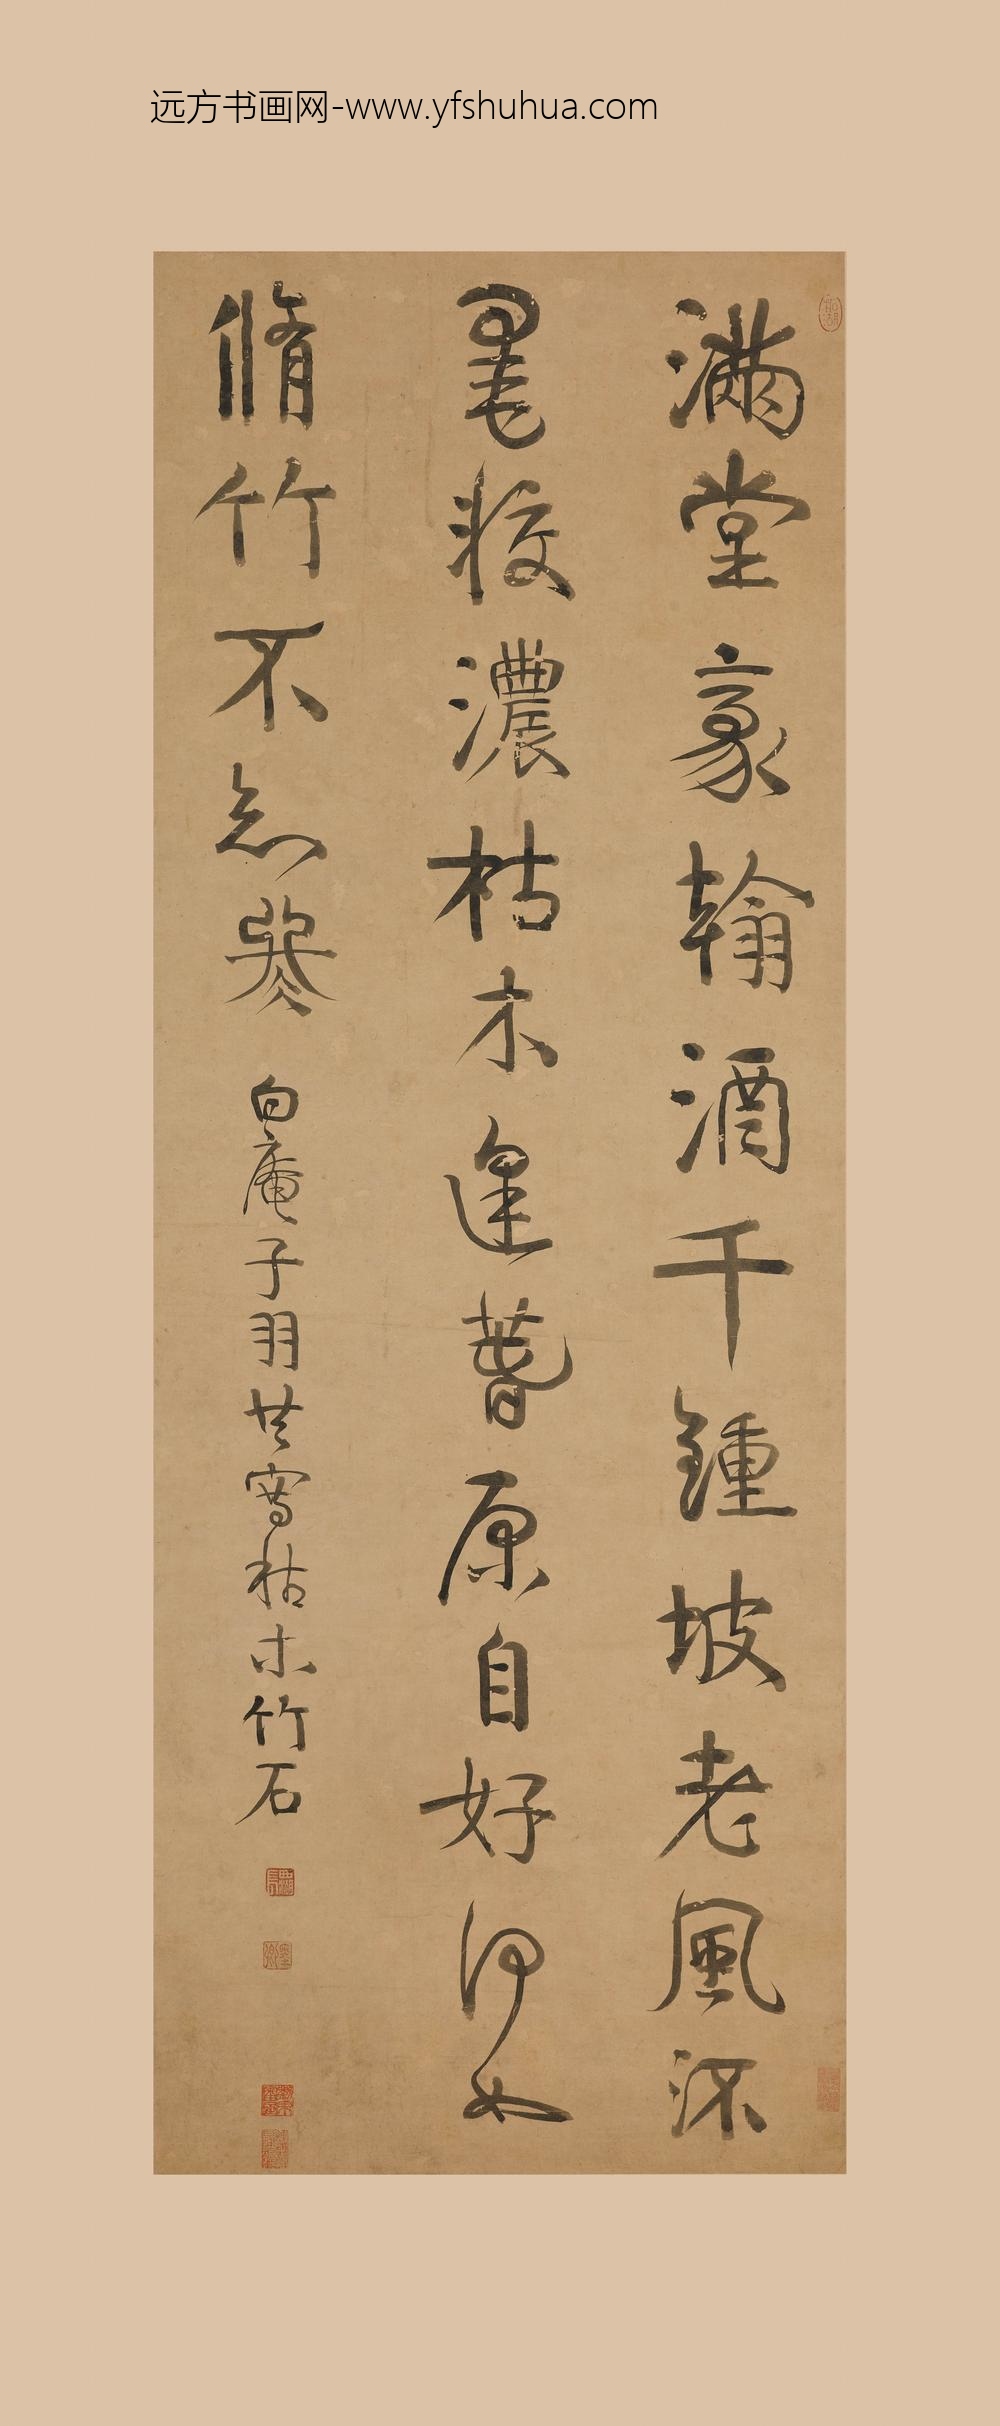 远方书画网-www.yfshuhua.com
滿堂豪翰酒千鍾坡老風流
濃枯木逢春原自好何如
脩竹不
白庵子羽共寫枯木竹石